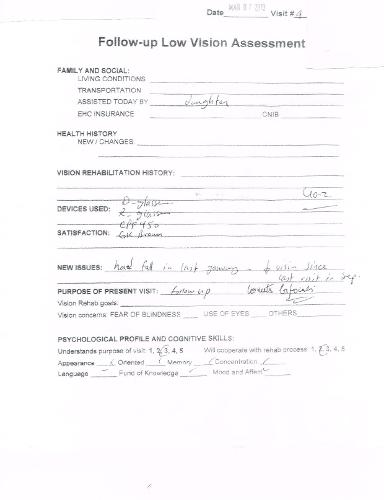 Date MAR 07 2012 Visit # 4
Follow-up Low Vision Assessment
FAMILY AND SOCIAL:
LIVING CONDITIONS
TRANSPORTATION
ASSISTED TODAY BY daughter
EHC INSURANCE CNIB
HEALTH HISTORY
NEW / CHANGES:
VISION REHABILITATION HISTORY:
D-glasses
DEVICES USED: R-glasses
CPF 450
SATISFACTION:
NEW ISSUES: had fall in last January - ↓ vision since
last visit in Sep.
PURPOSE OF PRESENT VISIT: Follow up
Vision Rehab goals:
Vision concerns: FEAR OF BLINDNESS USE OF EYES OTHERS
PSYCHOLOGICAL PROFILE AND COGNITIVE SKILLS:
Understands purpose of visit: 1, 2, 3, 4, 5 Will cooperate with rehab process: 1, 2, 3, 4, 5
Appearance ✓ Oriented ✓ Memory ✓ Concentration ✓
Language ✓ Fund of Knowledge ✓ Mood and Affect ✓